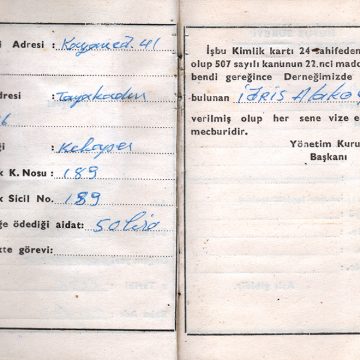 i Adresi : Kayaned. 41
dresi : Tayakadın
ği : Kebapçı
k K. Nosu : 189
k Sicil No. 189
ğe ödediği aidat: 50 lira
kte görevi:
İşbu Kimlik kartı 24 sahifeden
olup 507 sayılı kanunun 22.nci madd
bendi gereğince Derneğimizde
bulunan İdris
verilmiş olup her sene vize e
mecburidir.
Yönetim Kuru
Başkanı